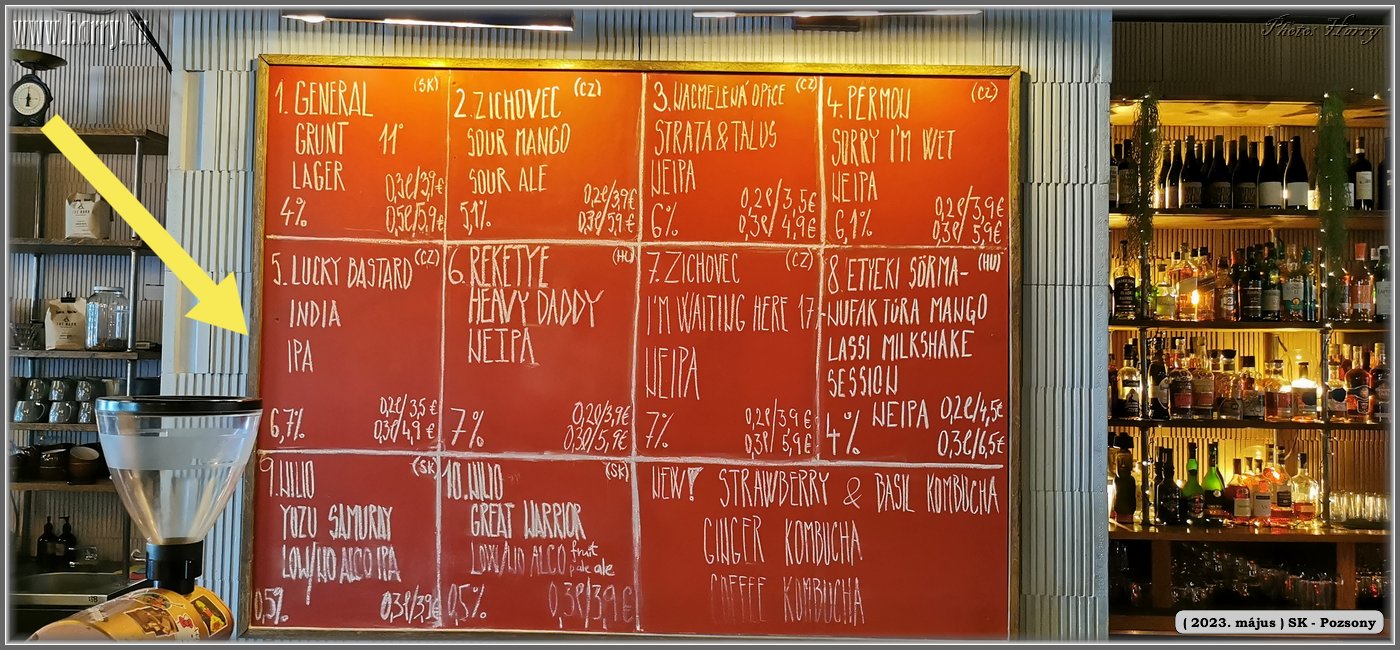 www.harry.hu
Photos Harry
1. GENERAL (SK)
GRUNT 11°
LAGER
4% 0,3l/3,9€
0,5l/5,9€
2. ZICHOVEC (CZ)
SOUR MANGO
SOUR ALE
5,1% 0,2l/3,9€
0,3l/5,9€
3. NACHMELENÁ OPICE (CZ)
STRATA & TALUS
NEIPA
6% 0,2l/3,5€
0,3l/4,9€
4. PERMON (CZ)
SORRY I'M WET
NEIPA
6,1% 0,2l/3,9€
0,3l/5,9€
5. LUCKY BASTARD (CZ)
INDIA
IPA
6,7% 0,2l/3,5€
0,3l/4,9€
6. REKETYE (HU)
HEAVY DADDY
NEIPA
7% 0,2l/3,9€
0,3l/5,9€
7. ZICHOVEC (CZ)
I'M WAITING HERE 17
NEIPA
7% 0,2l/3,9€
0,3l/5,9€
8. ETYEKI SÖRMA- (HU)
NUFAKTÚRA MANGO
LASSI MILKSHAKE
SESSION
NEIPA
4% 0,2l/4,5€
0,3l/6,5€
9. NILIO (SK)
YUZU SAMURAY
LOW/NO ALCO IPA
0,5% 0,3l/3,9€
10. NILIO (SK)
GREAT WARRIOR
LOW/NO ALCO fruit
pale ale
0,5% 0,3l/3,9€
NEW! STRAWBERRY & BASIL KOMBUCHA
GINGER KOMBUCHA
COFFEE KOMBUCHA
( 2023. május ) SK - Pozsony